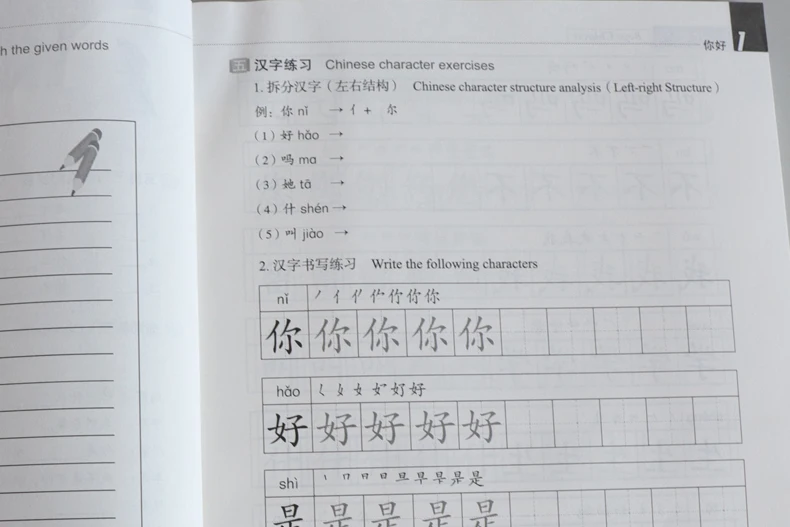 h the given words
你好 1
五 汉字练习 Chinese character exercises
1. 拆分汉字（左右结构） Chinese character structure analysis（Left-right Structure）
例：你 nǐ → 亻+ 尔
（1）好 hǎo →
（2）吗 ma →
（3）她 tā →
（4）什 shén →
（5）叫 jiào →
2. 汉字书写练习 Write the following characters
nǐ
你 你 你 你 你
hǎo
好 好 好 好 好
shì
是 是 是 是 是